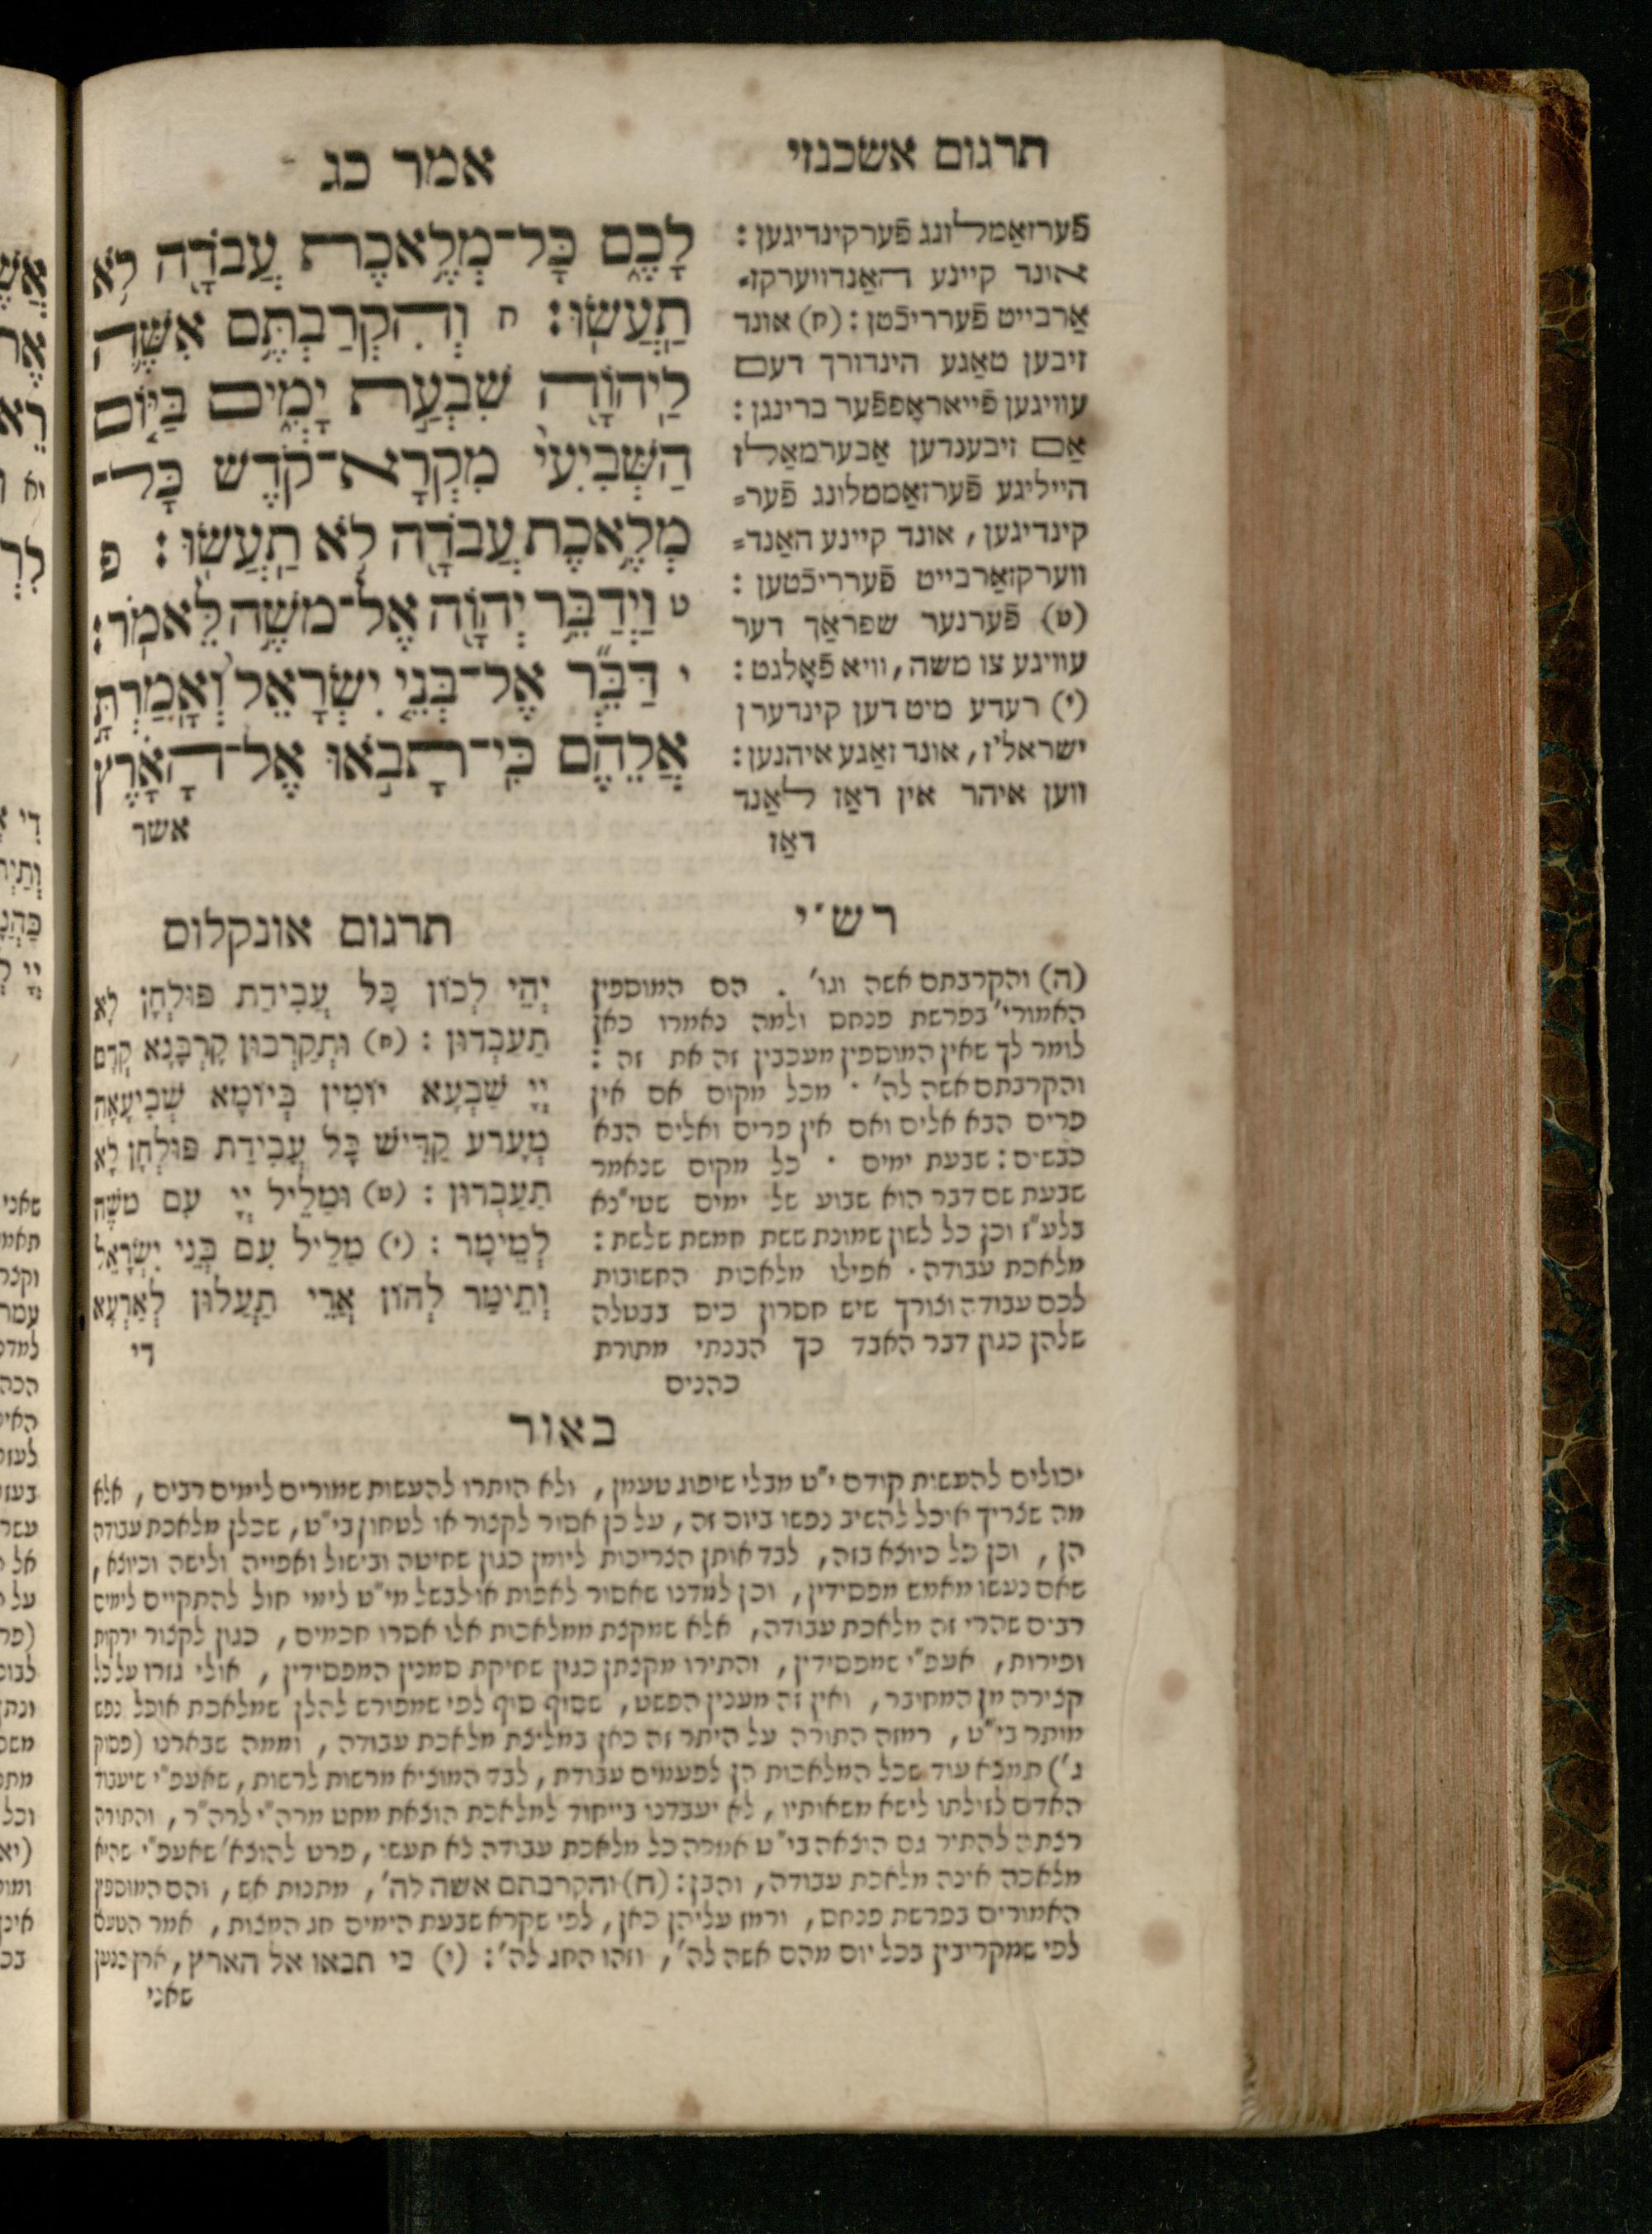 תרגום אשכנזי
אמר כג
פֿערזאַמלונג פֿערקינדיגען :
אונד קיינע האַנדווערקז־
אַרבייט פֿערריכֿטן : (ח) אונד
זיבען טאַגע הינדורך דעם
עוויגען פֿייאראָפפֿער ברינגן :
אַם זיבענדען אַבערמאַלז
הייליגע פֿערזאַממלונג פֿער־
קינדיגען , אונד קיינע האַנד־
ווערקזאַרבייט פֿערריכֿטען :
(ט) פֿערנער שפראַך דער
עוויגע צו משה , וויא פֿאָלגט :
(י) רעדע מיט דען קינדערן
ישראל'ז , אונד זאַגע איהנען :
ווען איהר אין דאַז לאַנד
דאַז
לָכֶ֑ם כָּל־מְלֶ֥אכֶת עֲבֹדָ֖ה לֹ֥א
תַעֲשֽׂוּ : ח וְהִקְרַבְתֶּ֥ם אִשֶּׁ֛ה
לַיהֹוָ֖ה שִׁבְעַ֣ת יָמִ֑ים בַּיּ֤וֹם
הַשְּׁבִיעִי֙ מִקְרָא־קֹ֔דֶשׁ כָּל־
מְלֶ֥אכֶת עֲבֹדָ֖ה לֹ֥א תַעֲשֽׂוּ : פ
ט וַיְדַבֵּ֥ר יְהֹוָ֖ה אֶל־מֹשֶׁ֥ה לֵּאמֹֽר :
י דַּבֵּ֞ר אֶל־בְּנֵ֤י יִשְׂרָאֵל֙ וְאָמַרְתָּ֣
אֲלֵהֶ֔ם כִּֽי־תָבֹ֣אוּ אֶל־הָאָ֗רֶץ
אשר
רש"י
(ה) והקרבתם אשה וגו' . הם המוספין
האמורי' בפרשת פנחם ולמה נאמרו כאן
לומר לך שאין המוספין מעכבין זה את זה :
והקרבתם אשה לה' · מכל מקום אם אין
פרים הבא אלים ואם אין פרים ואלים הבא
כבשים : שבעת ימים · כל מקום שנאמר
שבעת שם דבר הוא שבוע של ימים שטיי"נא
בלע"ז וכן כל לשון שמונת ששת חמשת שלשת :
מלאכת עבודה · אפילו מלאכות החשובות
לכם עבודה וצורך שיש חסרון כיס בבטלה
שלהן כגון דבר האבד כך הבנתי מתורת
כהנים
תרגום אונקלוס
יְהֵי לְכוֹן כָּל עֲבִידַת פּוּלְחַן לָא
תַעבְּדוּן : (ח) וּתְקַרְבוּן קָרְבָּנָא קֳדָם
יְיָ שַׁבְעָא יוֹמִין בְּיוֹמָא שְׁבִיעָאָה
מְעָרַע קַדִּישׁ כָּל עֲבִידַת פּוּלְחַן לָא
תַעבְּדוּן : (ט) וּמַלֵּיל יְיָ עִם משֶׁה
לְמֵימָר : (י) מַלֵּיל עִם בְּנֵי יִשְׂרָאֵל
וְתֵימַר לְהוֹן אֲרֵי תַעֲלוּן לְאַרְעָא
די
באור
יכולים להעשות קודם י"ט מבלי שיפוג טעמן , ולא הותרו להעשות שמורים לימים רבים , אלא
מה שצריך איכל להשיב נפשו ביום זה , על כן אסור לקצור או לטחון בי"ט , שכלן מלאכת עבודה
הן , וכן כל כיוצא בזה , לבד אותן הצריכות ליומן כגון שחיטה ובישול ואפייה ולישה וכיוצא ,
שאם נעשו מאמש מפסידין , וכן למדנו שאסור לאפות או לבשל מי"ט לימי חול להתקיים לימים
רבים שהרי זה מלאכת עבודה , אלא שמקצת ממלאכות אלו אסרו חכמים , כגון לקצור ירקות
ופירות , אעפ"י שמפסידין , והתירו מקצתן כגון שחיקת סמנין המפסידין , אולי גזרו על כל
קצירה מן המחיבר , ואין זה מענין הפשט , שסוף סוף לפי שמפורש להלן שמלאכת אוכל נפש
מותר בי"ט , רמזה התורה על היתר זה כאן במליצת מלאכת עבודה , וממה שבארנו (פסוק
ג') תמצא עוד שכל המלאכות הן לפעמים עבודת , לבד המוציא מרשות לרשות , שאעפ"י שיעבוד
האדם לזולתו לישא משאותיו , לא יעבדנו בייחוד למלאכת הוצאת מחט מרה"י לרה"ר , והתורה
רצתה להתיר גם הוצאה בי"ט אמרה כל מלאכת עבודה לא תעשו , פרט להוצא' שאעפ"י שהיא
מלאכה אינה מלאכת עבודה , והבן : (ח) והקרבתם אשה לה' , מתנות אש , והם המוספין
האמורים בפרשת פנחס , ורמז עליהן כאן , לפי שקרא שבעת הימים חג המצות , אמר הטעם
לפי שמקריבין בכל יום מהם אשה לה' , וזהו החג לה' : (י) כי תבאו אל הארץ , ארץ כנען
שאני